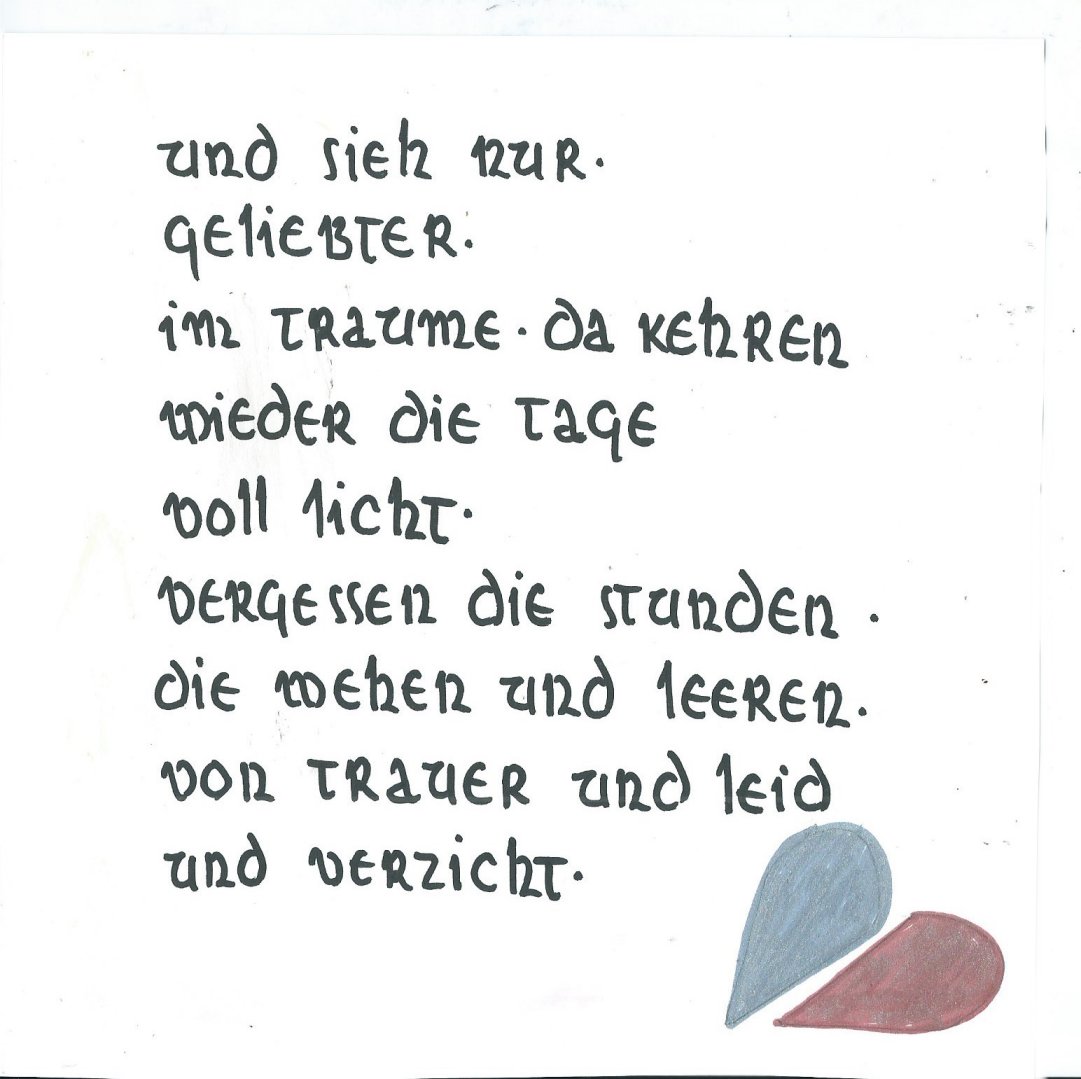 und sieh nur.
geliebter.
im traume. da kehren
wieder die tage
voll licht.
vergessen die stunden .
die wehen und leeren.
von trauer und leid
und verzicht.